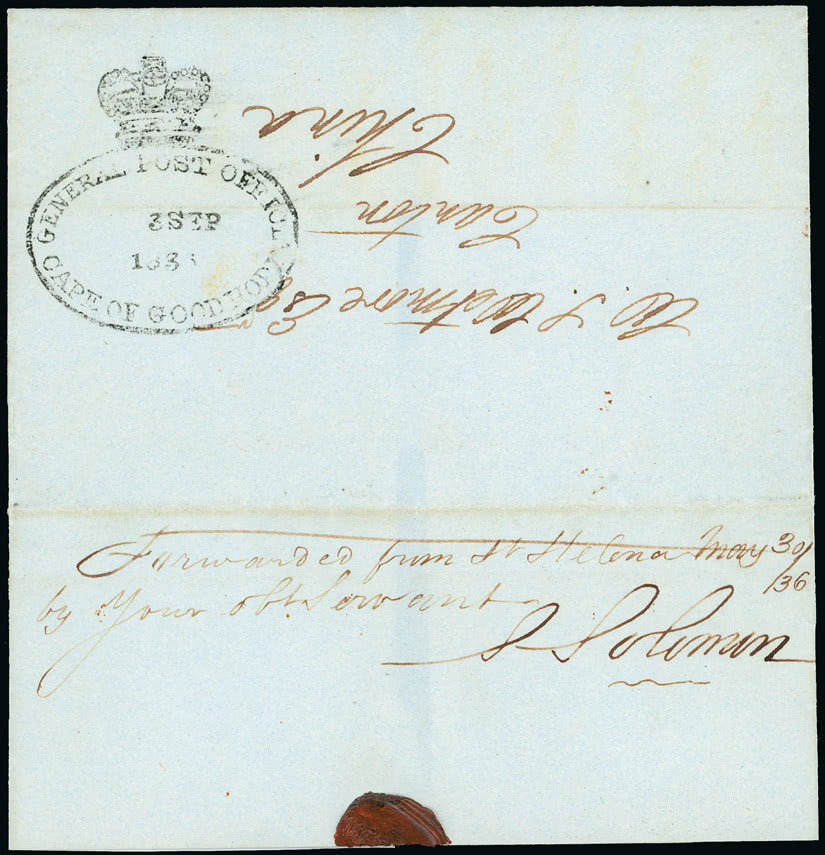 GENERAL POST OFFICE
3 SEP
CAPE OF GOOD HOPE
W. S. Wetmore Esqr
Canton
China
Forwarded from St Helena May 30/
/36
by Your obt. Servant
S Solomon